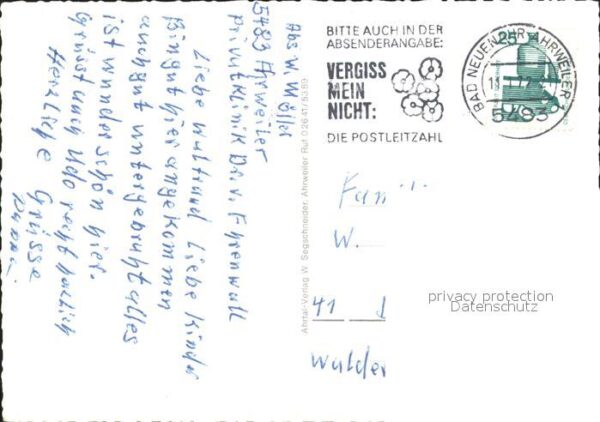 Abs. W. Wölles
Privatklinik Dr. v. Ehrenwall
5483 Ahrweiler
Liebe Waltraud Liebe Kinder
Bin gut hier angekommen
auch gut untergebracht alles
ist wunderschön hier.
Grüsst auch Udo recht herzlich
Herzliche Grüsse
Ahrtal-Verlag W. Segschneider, Ahrweiler Ruf 02641/5389
BITTE AUCH IN DER
ABSENDERANGABE:
VERGISS
MEIN
NICHT:
DIE POSTLEITZAHL
BAD NEUENAHR-AHRWEILER 1
5483
25
Fam
W.
41
Walder
privacy protection
Datenschutz